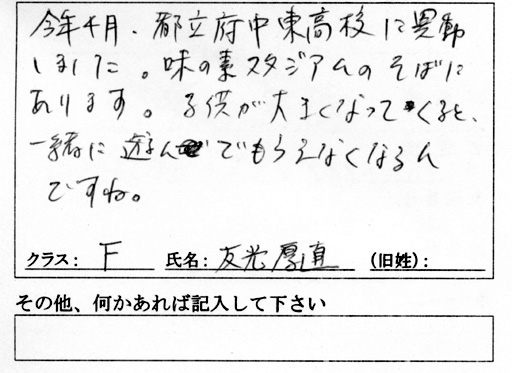 今年4月、都立府中東高校に異動
しました。味の素スタジアムのそばに
あります。子供が大きくなってくると、
一緒に遊んでもらえなくなるん
ですね。
クラス: F 氏名: 友光厚直 (旧姓):
その他、何かあれば記入して下さい